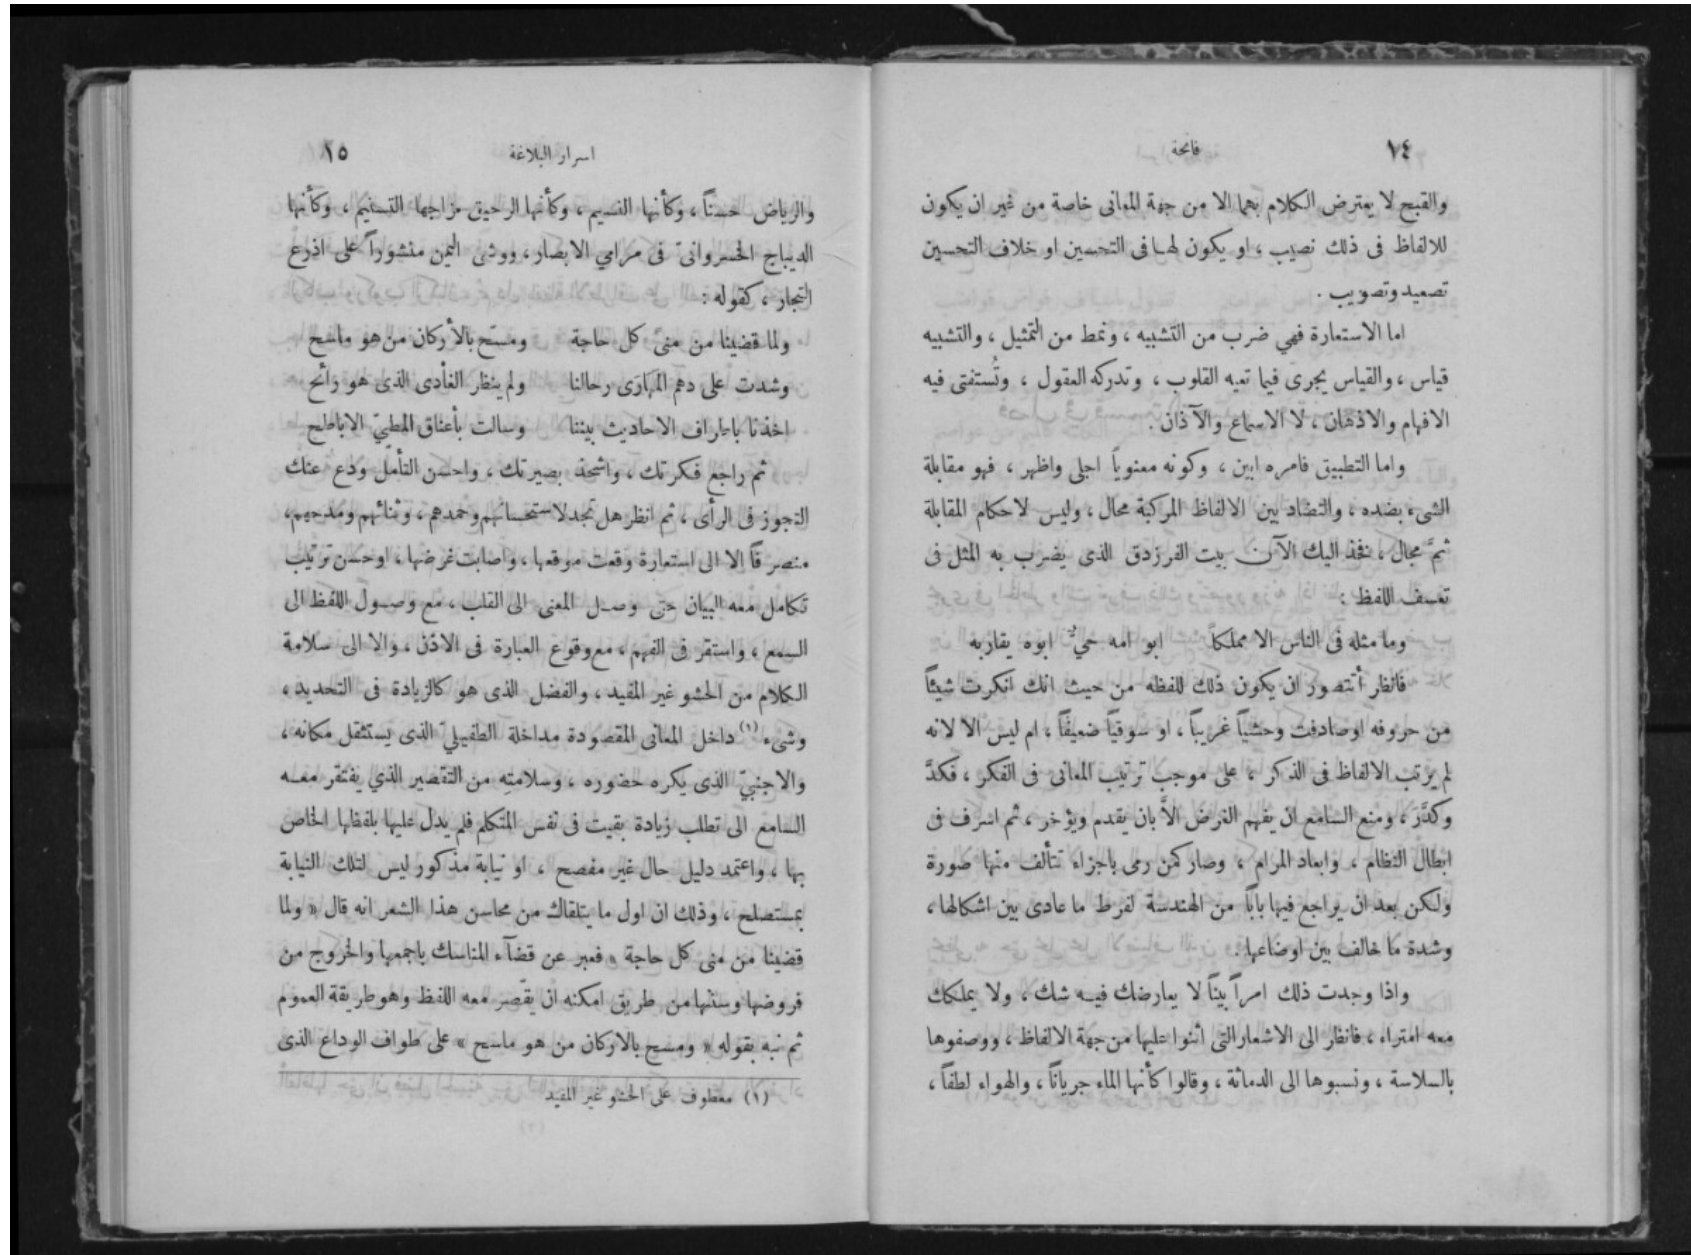 ١٤
فاتحة
والقبح لا يعترض الكلام بهما الا من جهة المعانى خاصة من غير ان يكون
للالفاظ فى ذلك نصيب ، او يكون لها فى التحسين او خلاف التحسين
تصعيد وتصويب .
اما الاستعارة فهي ضرب من التشبيه ، ونمط من التمثيل ، والتشبيه
قياس ، والقياس يجرى فيما تعيه القلوب ، وتدركه العقول ، وتُستفتى فيه
الافهام والاذهان ، لا الاسماع والآذان .
واما التطبيق فامره ابين ، وكونه معنوياً اجلى واظهر ، فهو مقابلة
الشىء بضده ، والتضاد بين الالفاظ المركبة محال ، وليس لاحكام المقابلة
ثمَّ مجال ، نخذ اليك الآن بيت الفرزدق الذى يضرب به المثل فى
تعسف اللفظ :
وما مثله فى الناس الا مملكاً ابو امه حيٌّ ابوه يقاربه
فانظر أتتصور ان يكون ذلك للفظه من حيث انك انكرت شيئاً
من حروفه اوصادفت وحشياً غريباً ، او سوقياً ضعيفاً ، ام ليس الا لانه
لم يرتب الالفاظ فى الذكر ، على موجب ترتيب المعانى فى الفكر ، فكدَّ
وكدَّرَ ، ومنع السامع ان يفهم الغرضَ الاَّ بان يقدم ويؤخر ، ثم اسرف فى
ابطال النظام ، وابعاد المرام ، وصار كمن رمى باجزاء تتألف منها صورة
ولكن بعد ان يراجع فيها باباً من الهندسة لفرط ما عادى بين اشكالها ،
وشدة ما خالف بين اوضاعها .
واذا وجدت ذلك امراً بيناً لا يعارضك فيه شك ، ولا يملكك
معه امتراء ، فانظر الى الاشعار التى اثنوا عليها من جهة الالفاظ ، ووصفوها
بالسلاسة ، ونسبوها الى الدماثة ، وقالوا كأنها الماء جرياناً ، والهواء لطفاً ،
اسرار البلاغة
١٥
والرياض حسناً ، وكأنها النسيم ، وكأنها الرحيق مزاجها التسنيم ، وكأنها
الديباج الخسروانىّ فى مرامي الابصار ، ووشى اليمن منشوراً على اذرع
التجار ، كقوله :
ولما قضينا من منىً كل حاجة ومسّح بالأركان من هو ماسح
وشدت على دهم المهَارَى رحالنا ولم ينظر الغادى الذى هو رائح
اخذنا باطراف الاحاديث بيننا وسالت بأعناق المطيّ الاباطح
ثم راجع فكرتك ، واشحذ بصيرتك ، واحسن التأمل ودع عنك
التجوز فى الرأى ، ثم انظر هل تجد لاستحسانهم وحمدهم ، وثنائهم ومدحهم،
منصرفاً إلا الى استعارة وقعت موقعها ، واصابت غرضها ، او حسن ترتيب
تكامل معه البيان حتى وصل المعنى الى القلب ، مع وصول اللفظ الى
السمع ، واستقر فى الفهم ، مع وقوع العبارة فى الاذن ، والا الى سلامة
الكلام من الحشو غير المفيد ، والفضل الذى هو كالزيادة فى التحديد ،
وشىء (١) داخل المعانى المقصودة مداخلة الطفيليّ الذى يستثقل مكانه ،
والاجنبيّ الذى يكره حضوره ، وسلامتِه من التقصير الذي يفتقر معه
السامع الى تطلب زيادة بقيت فى نفس المتكلم فلم يدل عليها بلفظها الخاص
بها ، واعتمد دليل حال غير مفصح ، او نيابة مذكور ليس لتلك النيابة
بمستصلح ، وذلك ان اول ما يتلقاك من محاسن هذا الشعر انه قال « ولما
قضينا من منى كل حاجة » فعبر عن قضآء المناسك باجمعها والخروج من
فروضها وسننها من طريق امكنه ان يقصر معه اللفظ وهو طريقة العموم
ثم نبه بقوله « ومسح بالاركان من هو ماسح » على طواف الوداع الذى
(١) معطوف على الحشو غير المفيد